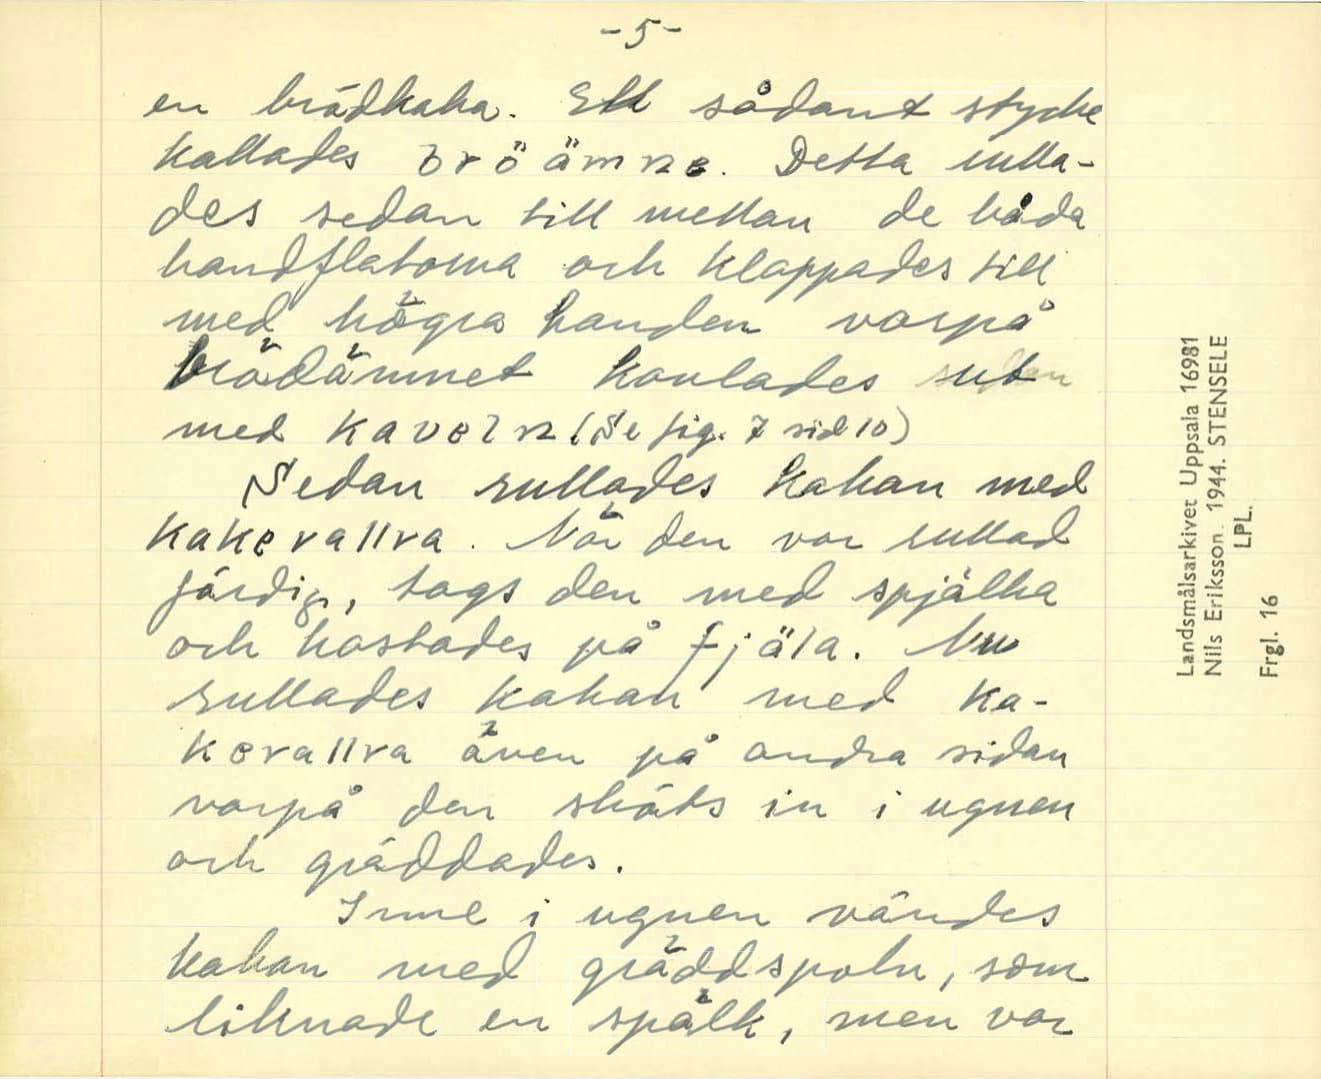 -5-
en brödkaka. Ett sådant stycke
kallades bröämne. Detta rulla-
des sedan till mellan de båda
handflatorna och klappades till
med högra handen varpå
brödämnet kavlades ut
med kaveln (Se fig. 7 sid 10)
Sedan rullades kakan med
kakevallra. När den var rullad
färdig, togs den med spjälka
och kastades på fjäla. Nu
rullades kakan med ka-
kevallra även på andra sidan
varpå den sköts in i ugnen
och gräddades.
Inne i ugnen vändes
kakan med gräddspoln, som
liknade en spälk, men var
Landsmålsarkivet Uppsala 16981
Nils Eriksson. 1944. STENSELE
LPL.
Frgl. 16